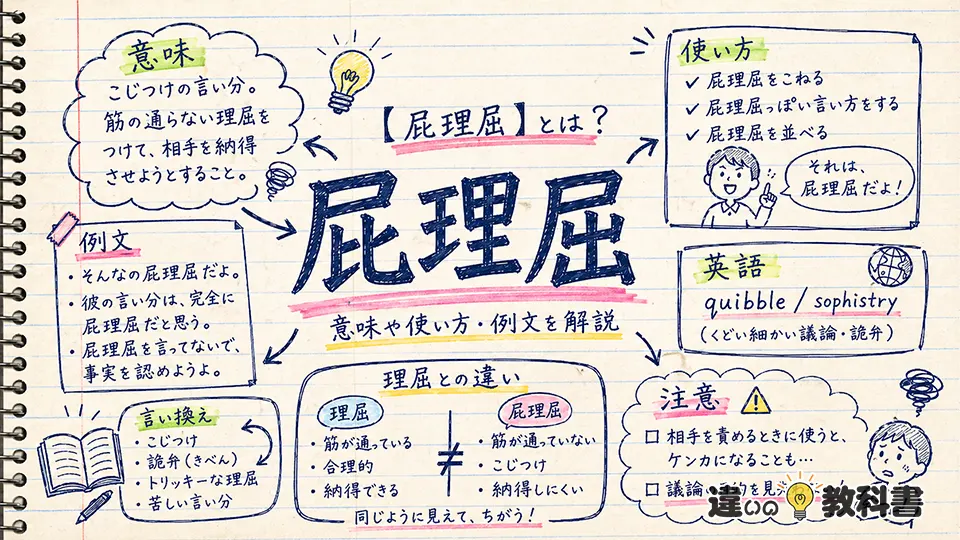 【屁理屈】とは？
屁理屈
意味や使い方・例文を解説
意味
こじつけの言い分。
筋の通らない理屈を
つけて、相手を納得
させようとすること。
使い方
✓ 屁理屈をこねる
✓ 屁理屈っぽい言い方をする
✓ 屁理屈を並べる
それは、
屁理屈だよ！
例文
・そんなの屁理屈だよ。
・彼の言い分は、完全に
屁理屈だと思う。
・屁理屈を言ってないで、
事実を認めようよ。
英語
quibble / sophistry
（くどい細かい議論・詭弁）
言い換え
・こじつけ
・詭弁（きべん）
・トリッキーな理屈
・苦しい言い分
理屈との違い
理屈
・筋が通っている
・合理的
・納得できる
≠
屁理屈
・筋が通っていない
・こじつけ
・納得しにくい
同じように見えて、ちがう！
注意
□ 相手を責めるときに使うと、
ケンカになることも…
□ 議論
を見
違いの教科書